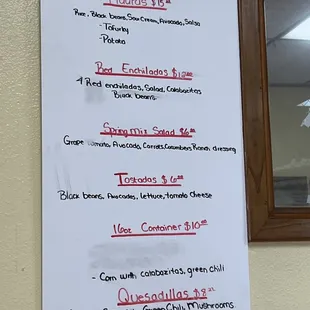 $15.00
Rice, Black beans, Sour Cream, Avocado, Salsa
- Tofurky
- Potato
Red Enchiladas $12.00
4 Red enchiladas, Salad, Calabacitas
Black beans
Spring Mix Salad $6.00
Grape tomato, Avocado, Carrots, Cucumbers Ranch dressing
Tostadas $6.00
Black beans, Avocados, Lettuce, tomato cheese
16oz Container $10.00
- Corn with calabazitas, green chili
Quesadillas $8
Green Chili, Mushrooms